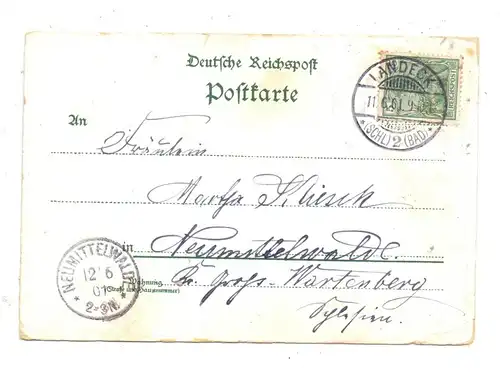 Deutsche Reichspost
Postkarte
LANDECK
11.6.01
*(SCHL) 2 (BAD)*
REICHSPOST
An
Fräulein
Martha
in Neumittelwalde.
Kr. Gross-Wartenberg
Schlesien.
NEUMITTELWALDE
12 6
01
2-3N.
Wohnung
(Straße und Hausnummer)